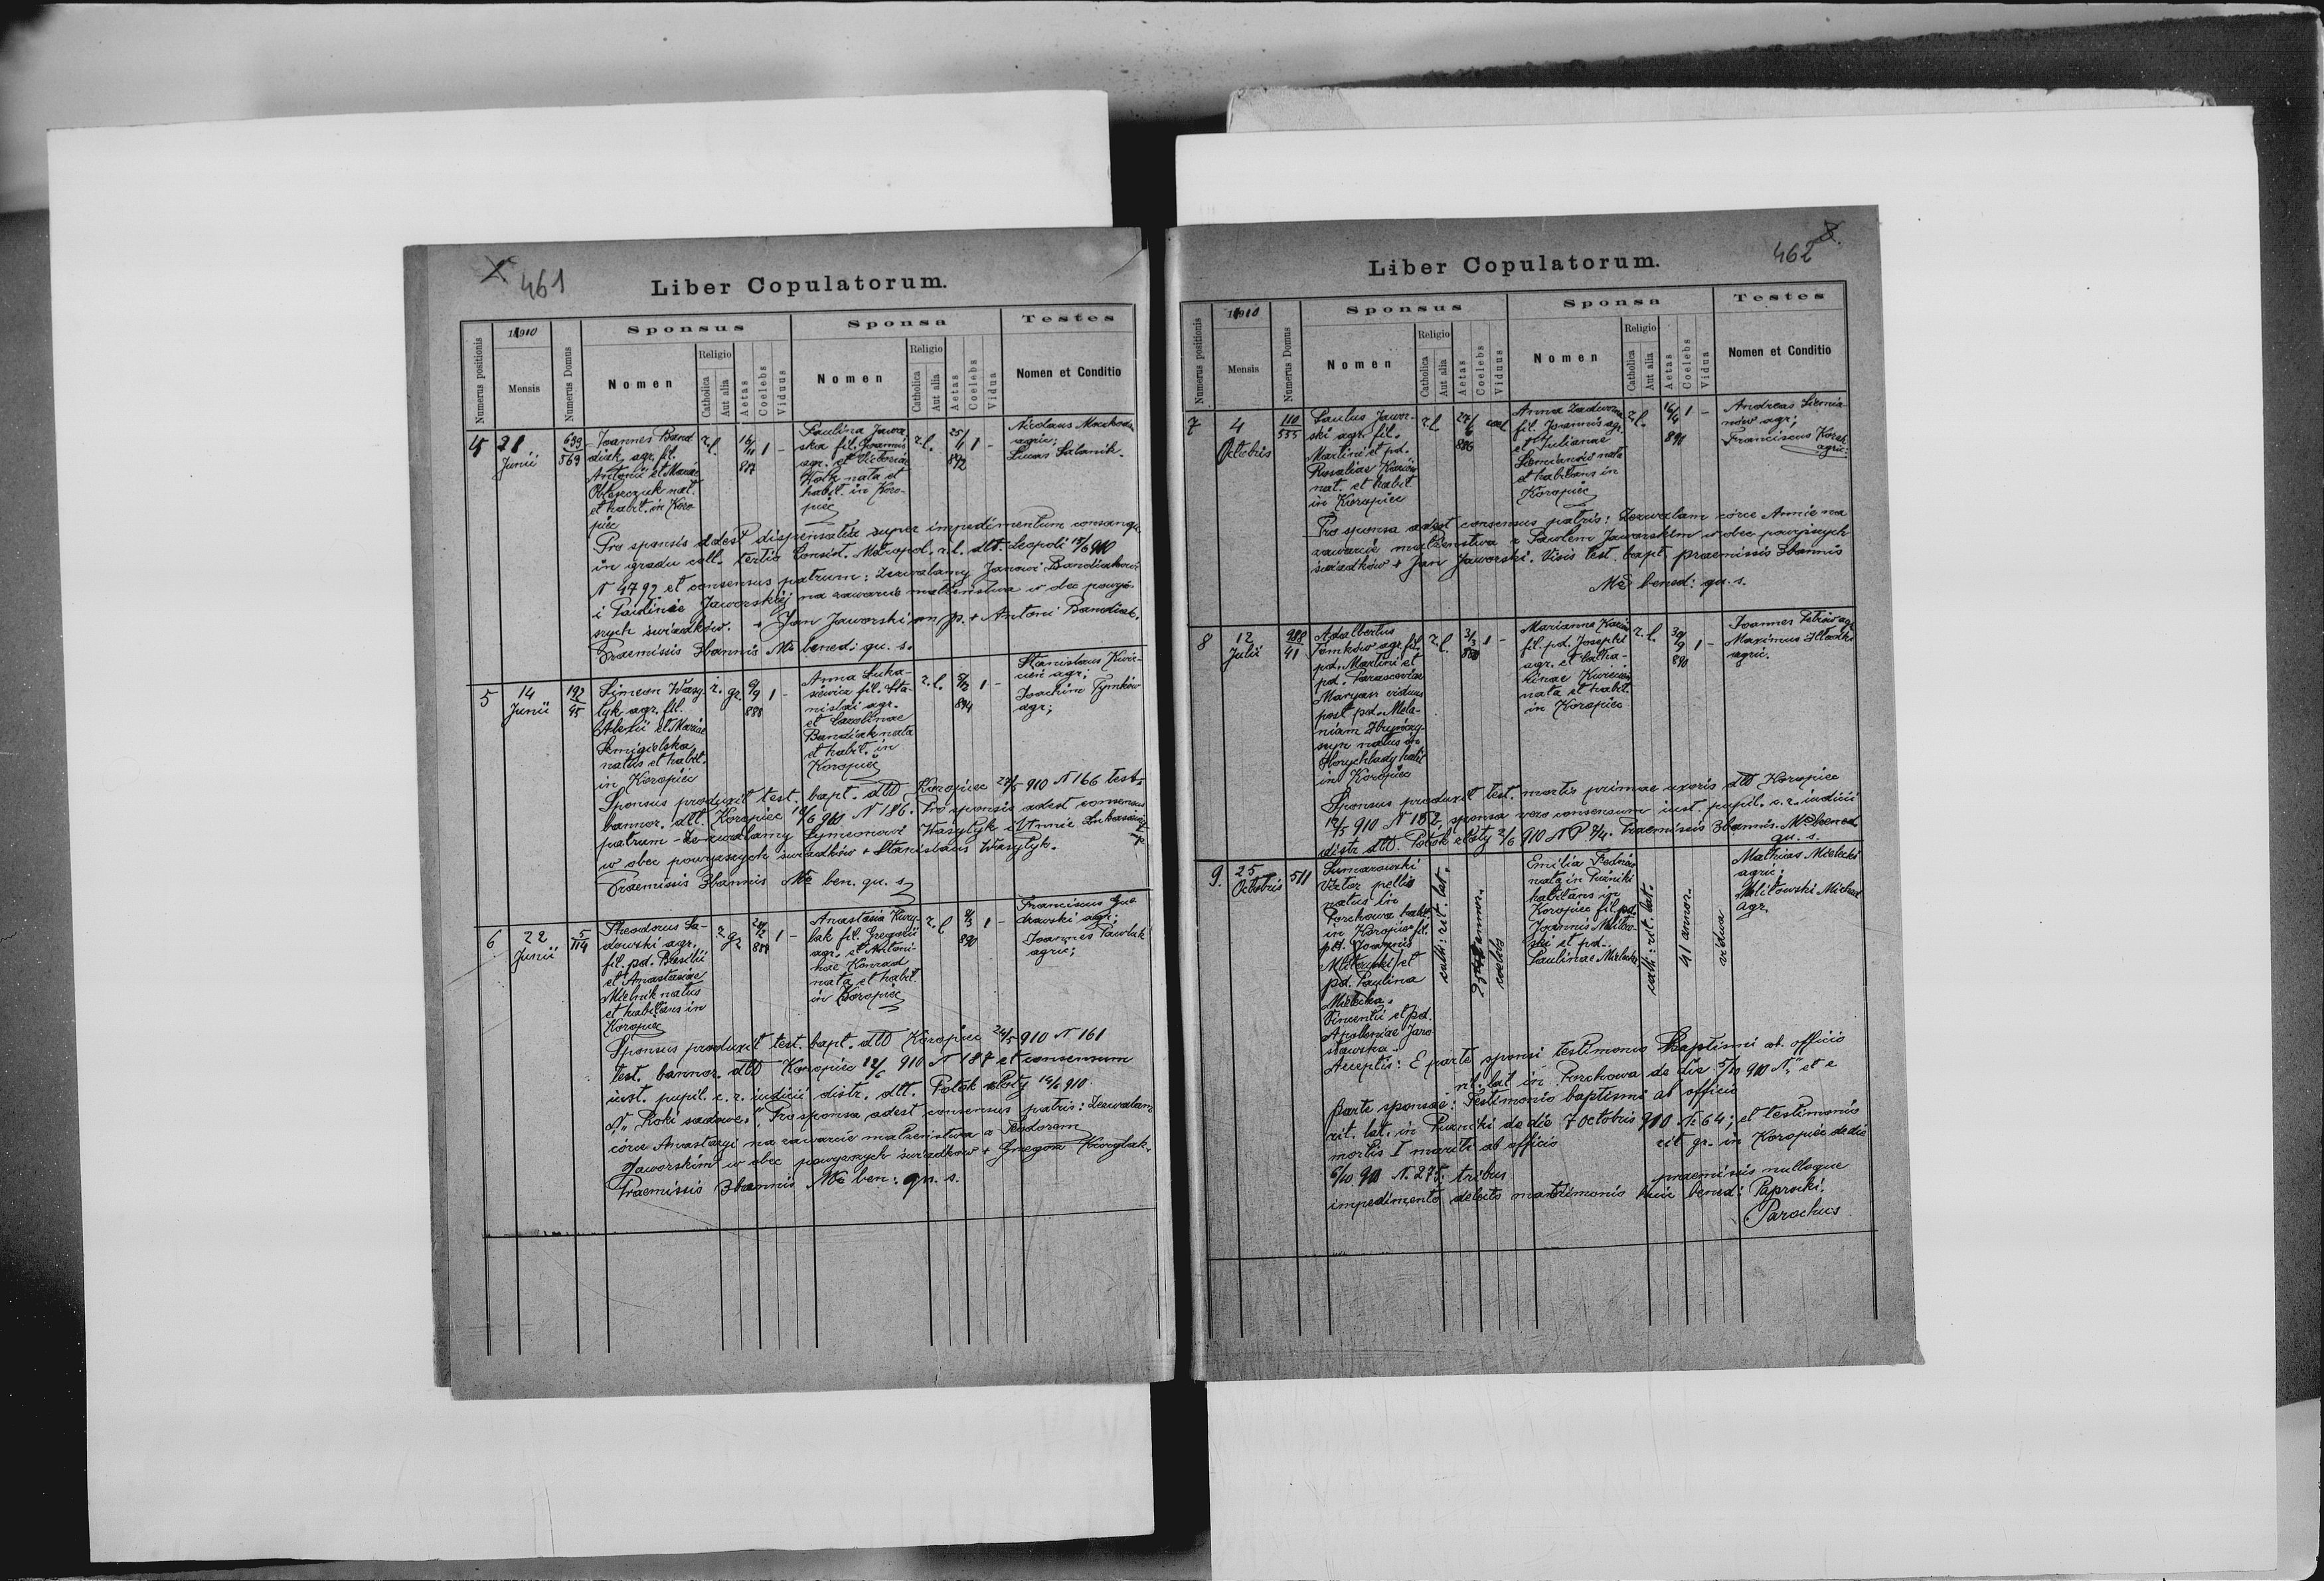 461
Liber Copulatorum.
Numerus positionis
1910
Mensis
Numerus Domus
Sponsus
Nomen
Religio
Catholica
Aut alia
Aetas
Coelebs
Viduus
Sponsa
Nomen
Religio
Catholica
Aut alia
Aetas
Coelebs
Vidua
Testes
Nomen et Conditio
4
21
Junii
639
569
Joannes Band
diak agr. fil.
Antonii et Mariae
nat.
et habit. in Koro
piec
r. l.
16/11
887
1 -
Paulina Jawor
ska fil. Joannis
agr. et Victoriae
nata et
habit. in Koro-
piec
r. l.
25/1
892
1 -
Nicolaus
agric;
Lucas
Pro sponsis adest dispensatio super impedimentum consangu.
in gradu coll. tertio Consist. Metropol. r. l. dtt. Leopoli 15/6 910
N 4792 et consensus patrum: Zezwalamy Janowi Bandiakowi
i Paulinie Jaworskiej na zawarcie małżeństwa w obec powyż-
szych świadków. + Jan Jaworski mp. + Antoni Bandiak.
Praemissis 3 bannis Mo bened: qu. s.
5
14
Junii
192
45
Simeon Wasy
lyk agr. fil.
Alexii et Mariae
Semigielska
natus et habit.
in Koropiec
r. gr.
9/9
888
1 -
Anna Luka-
siewicz fil. Sta-
nislai agr.
et Carolinae
Bandiak nata
et habit. in
Koropiec
r. l.
894
1 -
Stanislaus Kwie-
cień agr;
Joachim Tymków
agr;
Sponsus produxit test. bapt. dtto Koropiec 27/5 910 N 166 test.
bannor. dtt. Koropiec 12/6 910 N 186. Pro sponsis adest consensus
patrum - Zezwalamy Symeonowi Wasylyk i Annie Lukasiewicz
w obec powyższych świadków + Stanislaus Wasylyk.
Praemissis 3 bannis Mo ben. qu. s.
6
22
Junii
5
114
Theodorus Sa-
dowski agr.
fil. pd. Basilii
et Anastasiae
Mielnik natus
et habitans in
Koropiec
r. gr.
24/2
888
1 -
Anastasia Kury-
lak fil. Gregorii
agr. et Antoni-
nae Konrad
nata et habit.
in Koropiec
r. l.
8/3
890
1 -
Franciscus
agr;
Joannes Pawlak
agric;
Sponsus produxit test. bapt. dtto Koropiec 24/5 910 N 161
test. bannor. dtto Koropiec 12/6 910 N 187 et consensum
inst. pupil. c. r. iudicii distr. dtt. Potok złoty 14/6 910
N " Roki sadowe". Pro sponsa adest consensus patris: Zezwalam
córce Anastazyi na zawarcie małżeństwa z Teodorem
Jaworskim w obec powyższych świadków + Grzegorz Kurylak.
Praemissis 3 bannis Mo ben: qu. s.
462
Liber Copulatorum.
Numerus positionis
1910
Mensis
Numerus Domus
Sponsus
Nomen
Religio
Catholica
Aut alia
Aetas
Coelebs
Viduus
Sponsa
Nomen
Religio
Catholica
Aut alia
Aetas
Coelebs
Vidua
Testes
Nomen et Conditio
7
4
Octobris
110
535
Paulus Jawor-
ski agr. fil.
Martini et pd.
Rosaliae
nat. et habit
in Koropiec
r. l.
27/6
886
coel
Anna Zadworna
fil. Joannis agr.
et Julianae
Siemianów nata
et habitans in
Koropiec
r. l.
16/4
891
1 -
Andreas Siemia-
nów agr;
Franciscus
agric:
Pro sponsa adest consensus patris: Zezwalam córce Annie na
zawarcie małżeństwa z Pawłem Jaworskim w obec powyższych
świadków + Jan Jaworski. Visis test. bapt. praemissis 3 bannis
Mo bened: qu. s.
8
12
Julii
288
41
Adalbertus
Tomków agr. fil.
pd. Martini et
pd. Parascevae
Maryasz viduus
post pd. Mela-
niam
natus in
Horyhlady habit
in Koropiec
r. l.
3/3
880
1 -
Marianna
fil. pd. Josephi
agr. et Catha-
rinae Kwiecień
nata et habit.
in Koropiec
r. l.
30/9
890
1 -
Joannes Petrów agr
Maximus
agric.
Sponsus produxit test. mortis primae uxoris dtto Koropiec
12/5 910 N 152, sponsa vero consensum inst. pupil. c. r. iudicii
distr. dtto. Potok złoty 2/6 910 N P 7/4. Praemissis 3 bannis. Mo bened.
qu. s.
9.
25
Octobris
511
Sumarowski
Victor pellio
natus in
Porchowa habit.
in Koropiec fil.
pd. Joannis
Militowski et
pd. Paulina
Mielecka.
Vincentii et pd.
Apoloniae Jaro-
sławska.
cath: rit. lat.
annor.
coelebs
Emilia Fedrów
nata in Puźniki
habitans in
Koropiec fil. pd.
Joannis Militow-
ski et pd.
Paulinae Mielecka
cath: rit. lat.
41 annor.
vidua
Mathias Mielecki
agric;
Militowski Michael
agr.
Acceptis: E parte sponsi testimonio Baptismi ab officio
rit. lat in Porchowa de die 5/10 910 N " et e
parte sponsae: Testimonio baptismi ab officio
rit. lat. in Puźniki de die 7 octobris 910 N. 64; et testimonio
mortis I mariti ab officio rit gr. in Koropiec de die
6/10 910 N. 275, tribus praemissis nulloque
impedimento detecto matrimonio huic bened: Paprocki.
Parochus